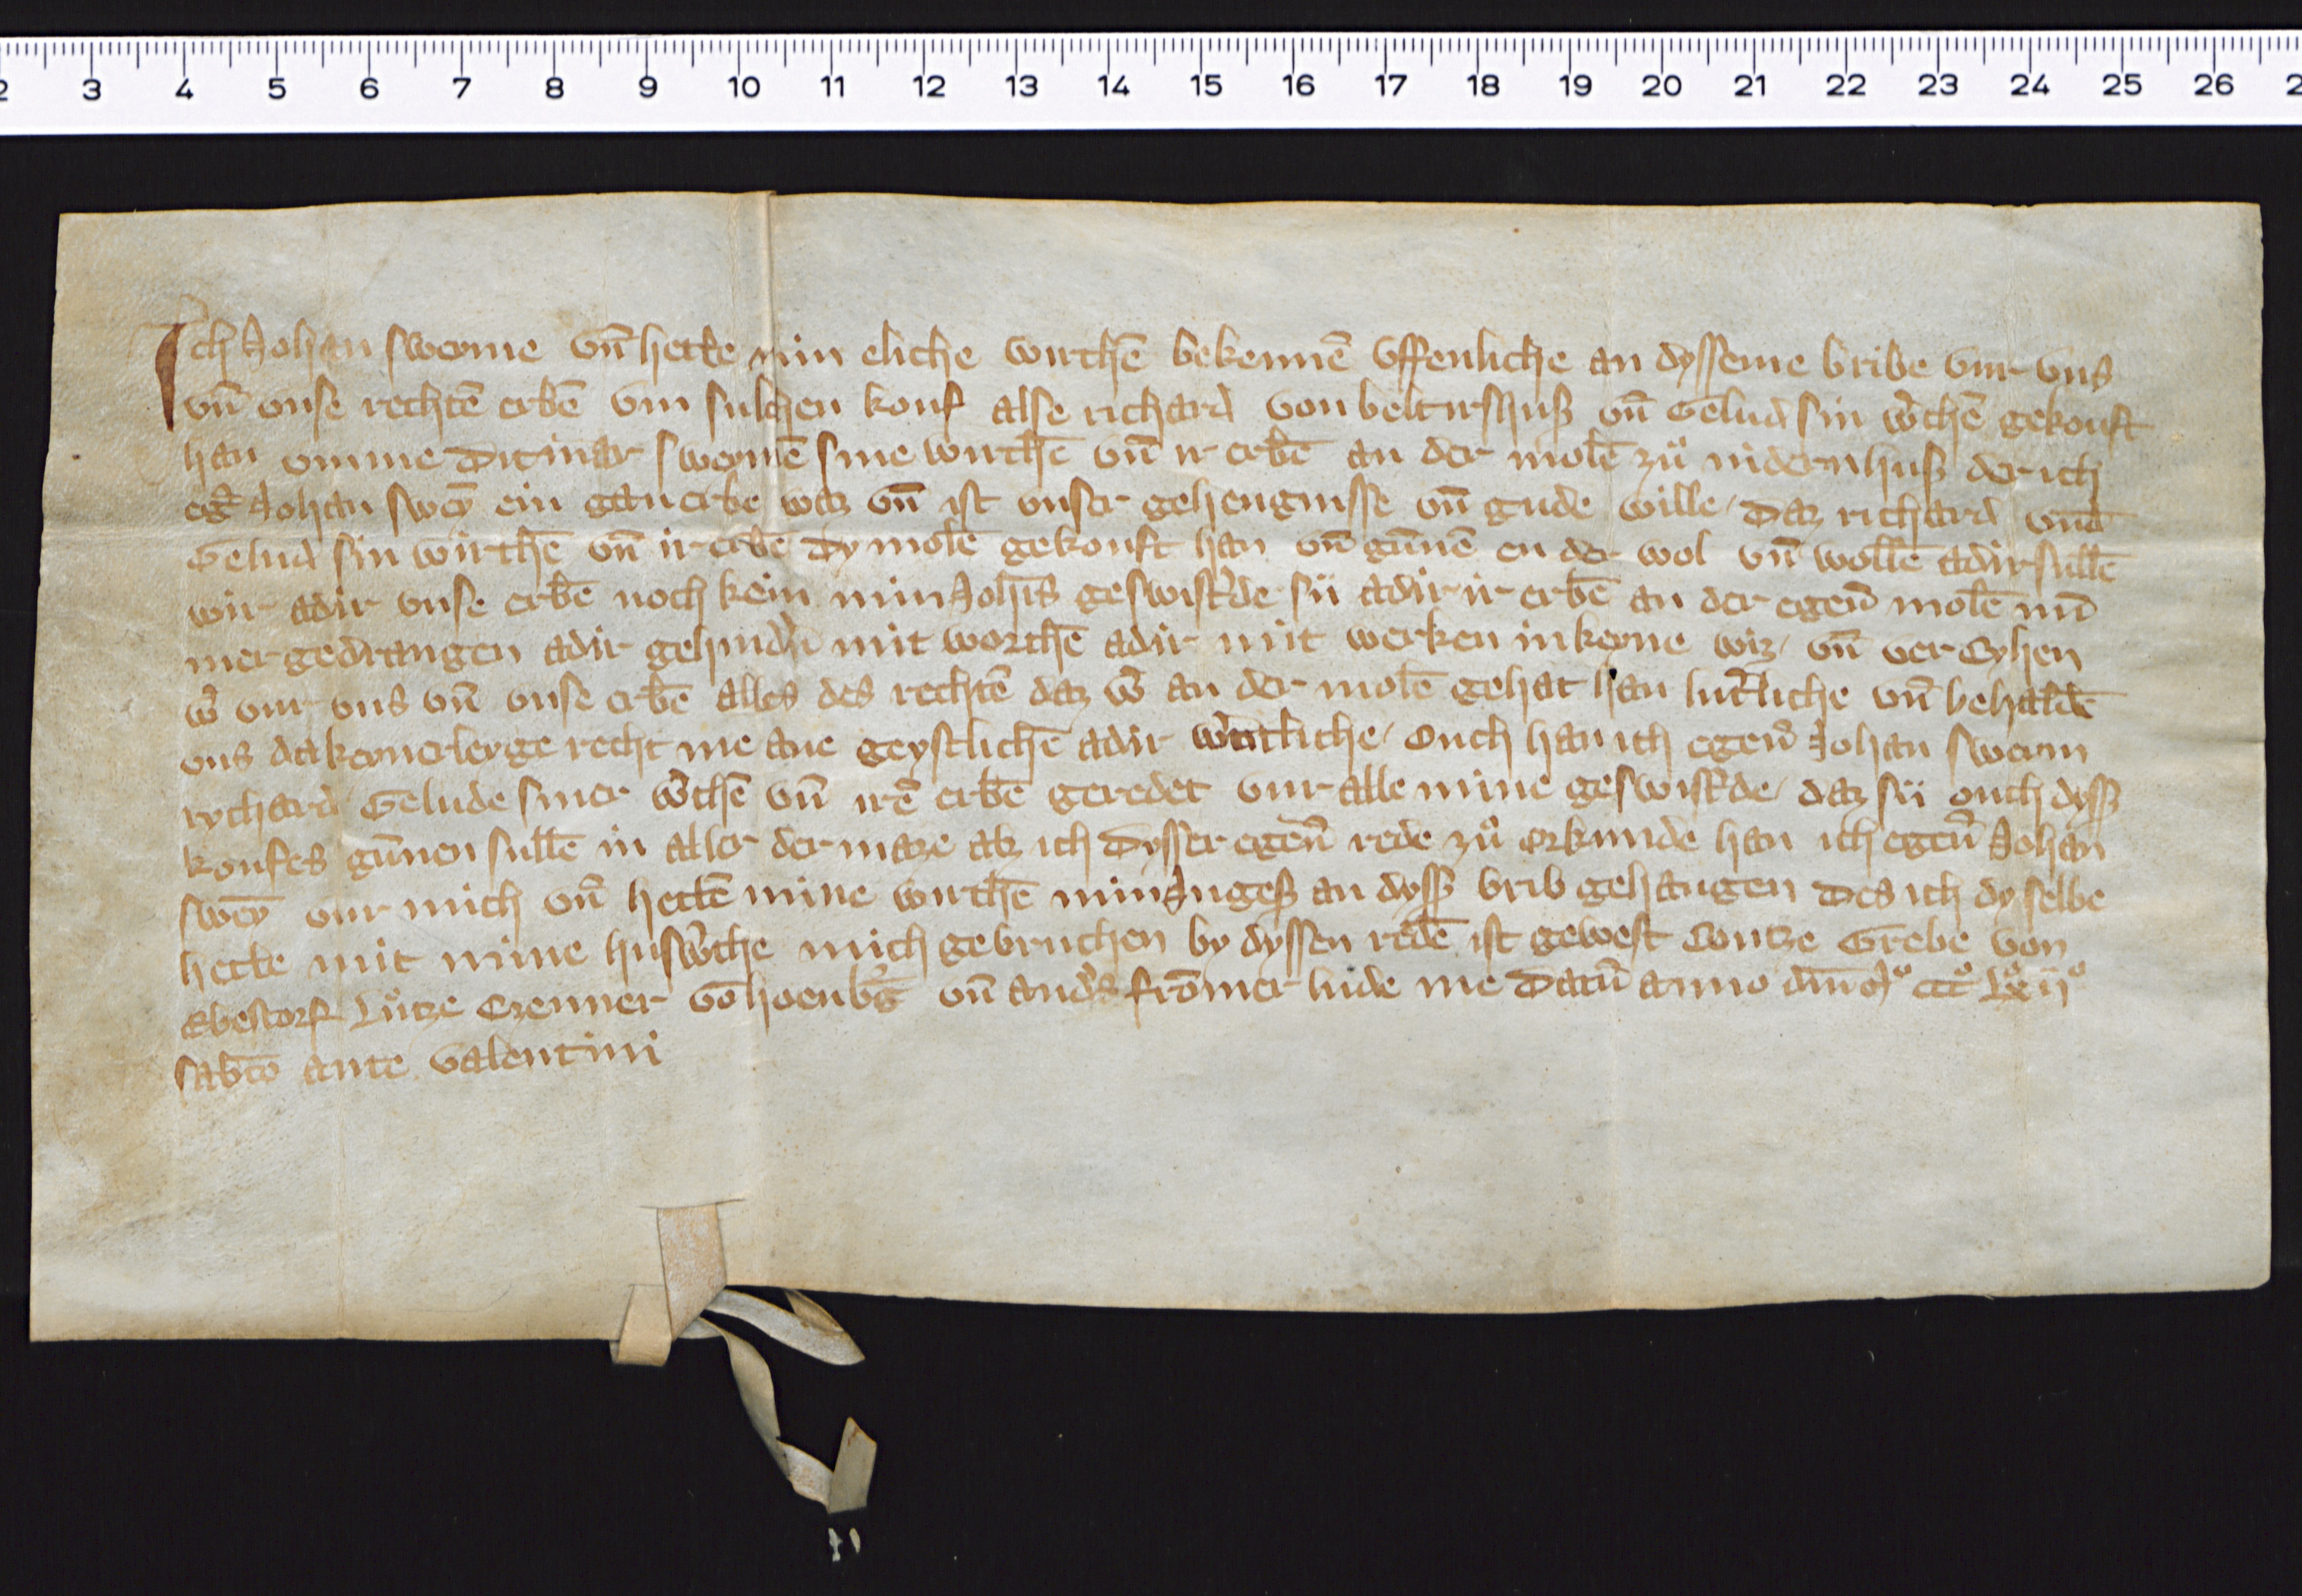 2 3 4 5 6 7 8 9 10 11 12 13 14 15 16 17 18 19 20 21 22 23 24 25 26 2
Ich Johan sweyme vn̄ hette min eliche wirthē bekennē vffenliche an dysseme bribe vur vns
vn̄ vnse rechtē erbē vm sulchen kouf alse richard von beltirshuß vn̄ Gelud sin w'thē gekouft
han vmme Ditmar sweymē sine wirthē vn̄ ir erbē an der molē zů nidernhuß der ich
eḡ Johan sweȳ ein ganerbe waz vn̄ ist vnser gehengnisse vn̄ gude wille / Daz richard vnd
Gelud sin wirthē vn̄ ir erbē Dy molē gekouft han vn̄ gūnē en der wol vn̄ wollē adir sullē
wir adir vnse erbē noch kein min Joh̄is geswist'de sii adir ir erbē an der egen̄ molē nū
mer gedrangen adir gehind'n mit worthē adir mit werken in keyne wiz / vn̄ ver Cyhen
w' vur vns vn̄ vnse erbē alles des rechtē daz w' an der molē gehat han lut'liche vn̄ behaldē
vns da keynerleyge recht me ane geystlichē adir w'ntliche / Ouch han ich egen̄ Johan sweym
rychard Gelude siner w'thē vn̄ irē erbē geredet vur alle mine geswist'de / daz sii ouch dyss
koufes gūnen sullē in aller der maze alz ich Dysser egen̄ rede zů orkunde han ich egen̄ Johan
sweȳ vur mich vn̄ hettē mine wirthē min Ingeß an dyss brib gehangen Des ich dy selbe
hette mit mine husw'the mich gebruchen by dyssen redē ist gewest Contze Grebe von
Ebestorf Lůtze Czenner vō hoenb'g vn̄ and's fromer lude me Datū anno dm̄ Mº cccº Lxºiiº
sabto ante valentini